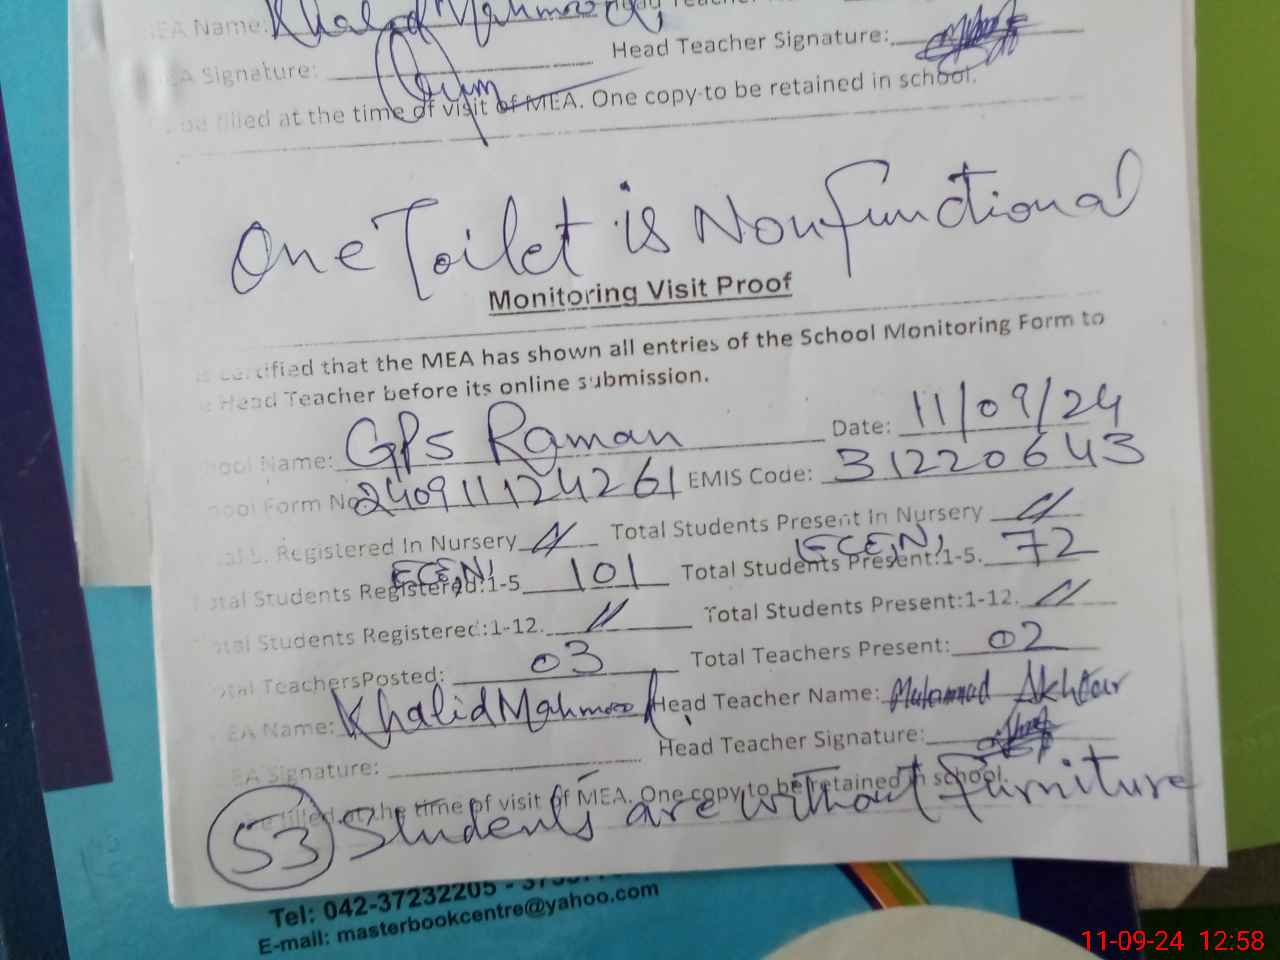 EA Name: Khalid Mahmood Head Teacher
A Signature: Head Teacher Signature:
be filled at the time of visit of MEA. One copy to be retained in school.
One Toilet is Nonfunctional
Monitoring Visit Proof
is certified that the MEA has shown all entries of the School Monitoring Form to
e Head Teacher before its online submission.
hool Name: GPS Raman Date: 11/09/24
hool Form No 240911124261 EMIS Code: 31220643
Registered In Nursery // Total Students Present In Nursery //
ECE,N, ECE,N,
otal Students Registered:1-5 101 Total Students Present:1-5. 72
otal Students Registered:1-12. // Total Students Present:1-12. //
otal TeachersPosted: 03 Total Teachers Present: 02
EA Name: Khalid Mahmood Head Teacher Name: Muhammad Akhtar
EA Signature: Head Teacher Signature:
be filled at the time of visit of MEA. One copy to be retained in school.
53 Students are without Furniture
Tel: 042-37232205 -
E-mail: masterbookcentre@yahoo.com
11-09-24 12:58